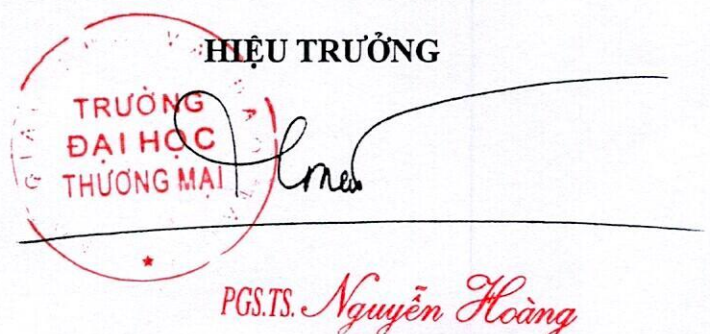 HIỆU TRƯỞNG
TRƯỜNG
ĐẠI HỌC
THƯƠNG MẠI
PGS.TS. Nguyễn Hoàng